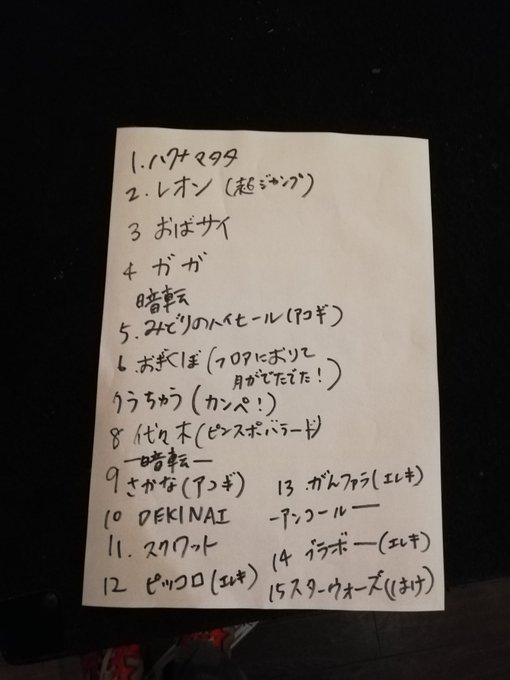 1.ハクナマタタ
2.レオン(超ジャンプ)
3 おばサイ
4 ガガ
暗転
5.みどりのハイヒール(アコギ)
6.おぎくぼ(フロアにおりて
月がでたでた!)
7うらちゃう(カンペ!)
8 代々木(ピンスポバラード)
暗転
9 さかな(アコギ)
10 DEKINAI
11.スクワット
12 ピッコロ(エレキ)
13.がんファラ(エレキ)
-アンコール-
14 ブラボー(エレキ)
15スターウォーズ(はけ)